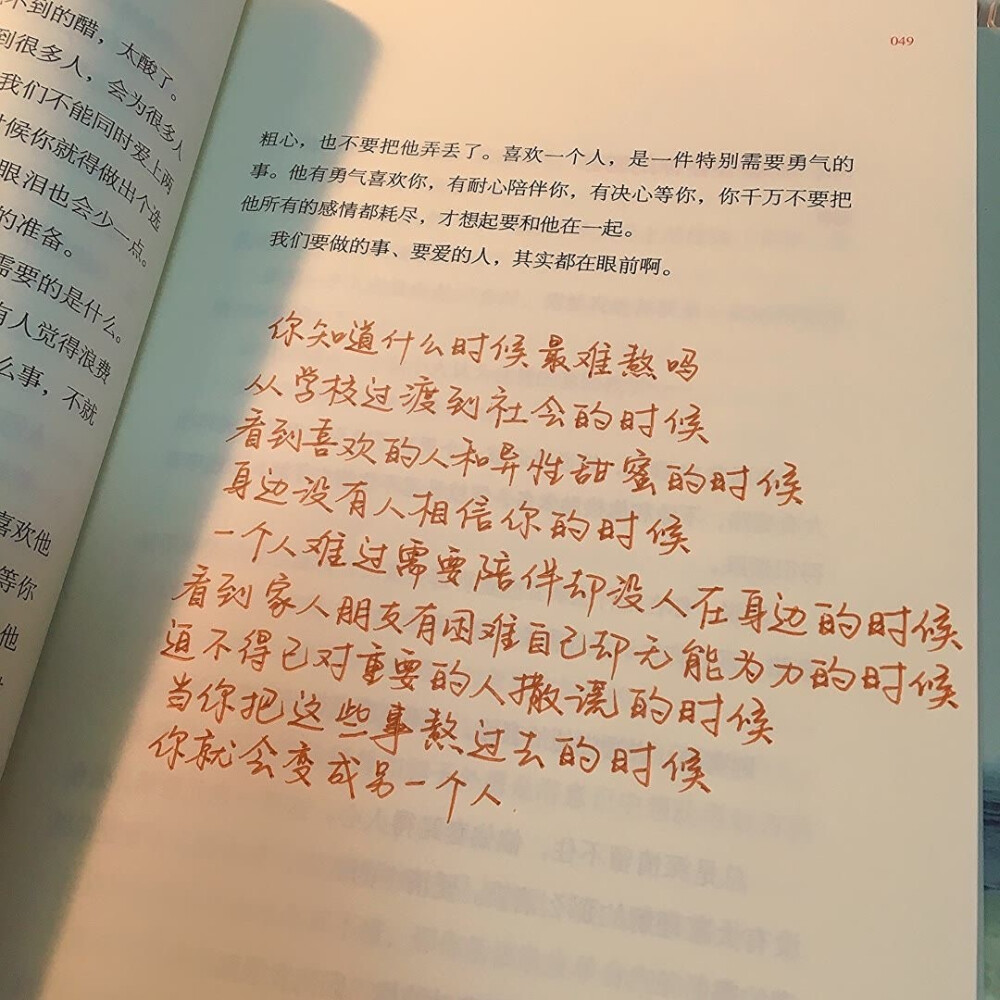 不到的醋，太酸了。
到很多人，会为很多人
我们不能同时爱上两
时候你就得做出个选
眼泪也会少一点。
的准备。
需要的是什么。
有人觉得浪费
么事，不就
喜欢他
等你
他
049
粗心，也不要把他弄丢了。喜欢一个人，是一件特别需要勇气的
事。他有勇气喜欢你，有耐心陪伴你，有决心等你，你千万不要把
他所有的感情都耗尽，才想起要和他在一起。
我们要做的事、要爱的人，其实都在眼前啊。
你知道什么时候最难熬吗
从学校过渡到社会的时候
看到喜欢的人和异性甜蜜的时候
身边没有人相信你的时候
一个人难过需要陪伴却没人在身边的时候
看到家人朋友有困难自己却无能为力的时候
迫不得已对重要的人撒谎的时候
当你把这些事熬过去的时候
你就会变成另一个人.